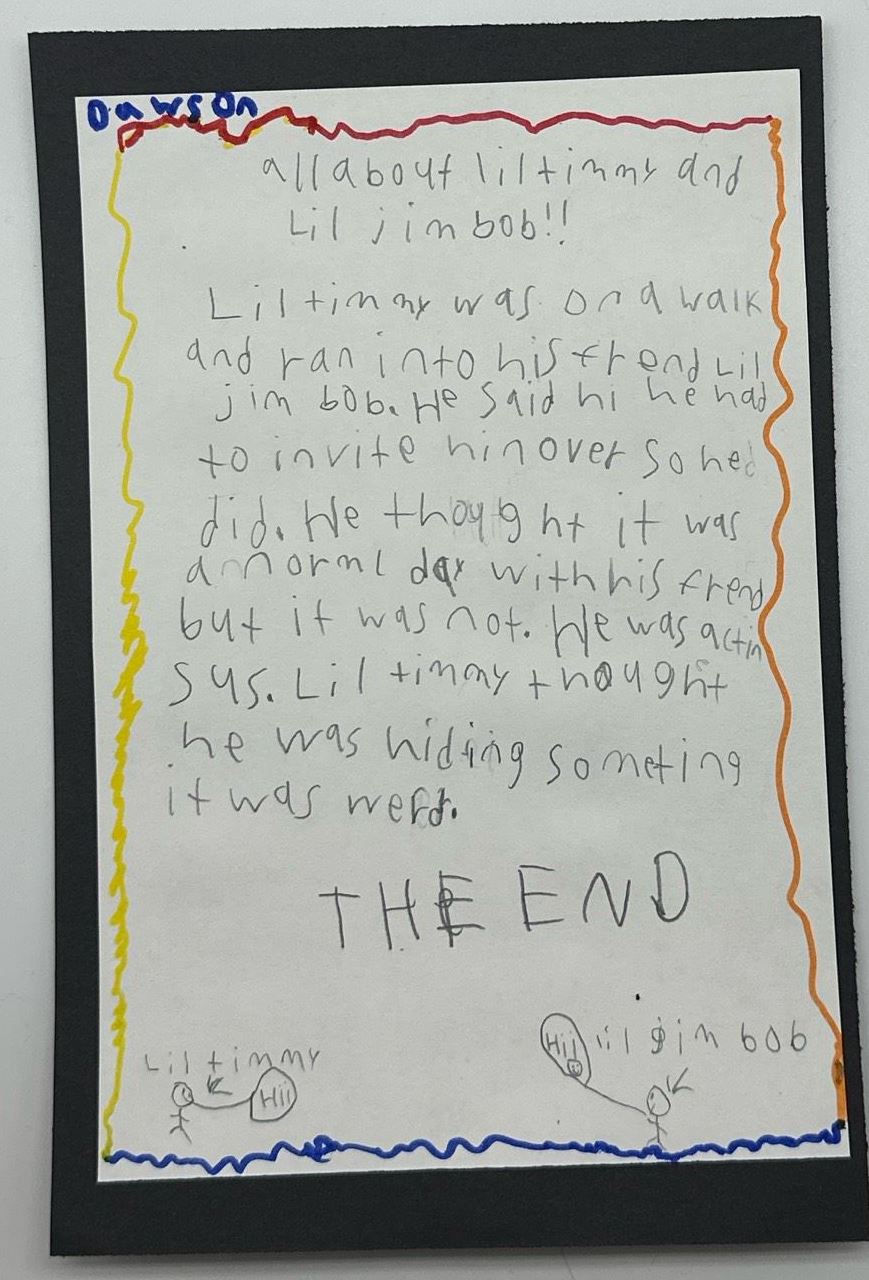 Dawson
all about lil timmy and
Lil jim bob!!
Lil timmy was on a walk
and ran into his frend Lil
jim bob. He said hi he had
to invite hin over so he
did. He thought it was
a norml day with his frend
but it was not. He was actin
sus. Lil timmy thought
he was hiding someting
it was werd.
THE END
Lil timmy
Hii
Hii
lil jim bob